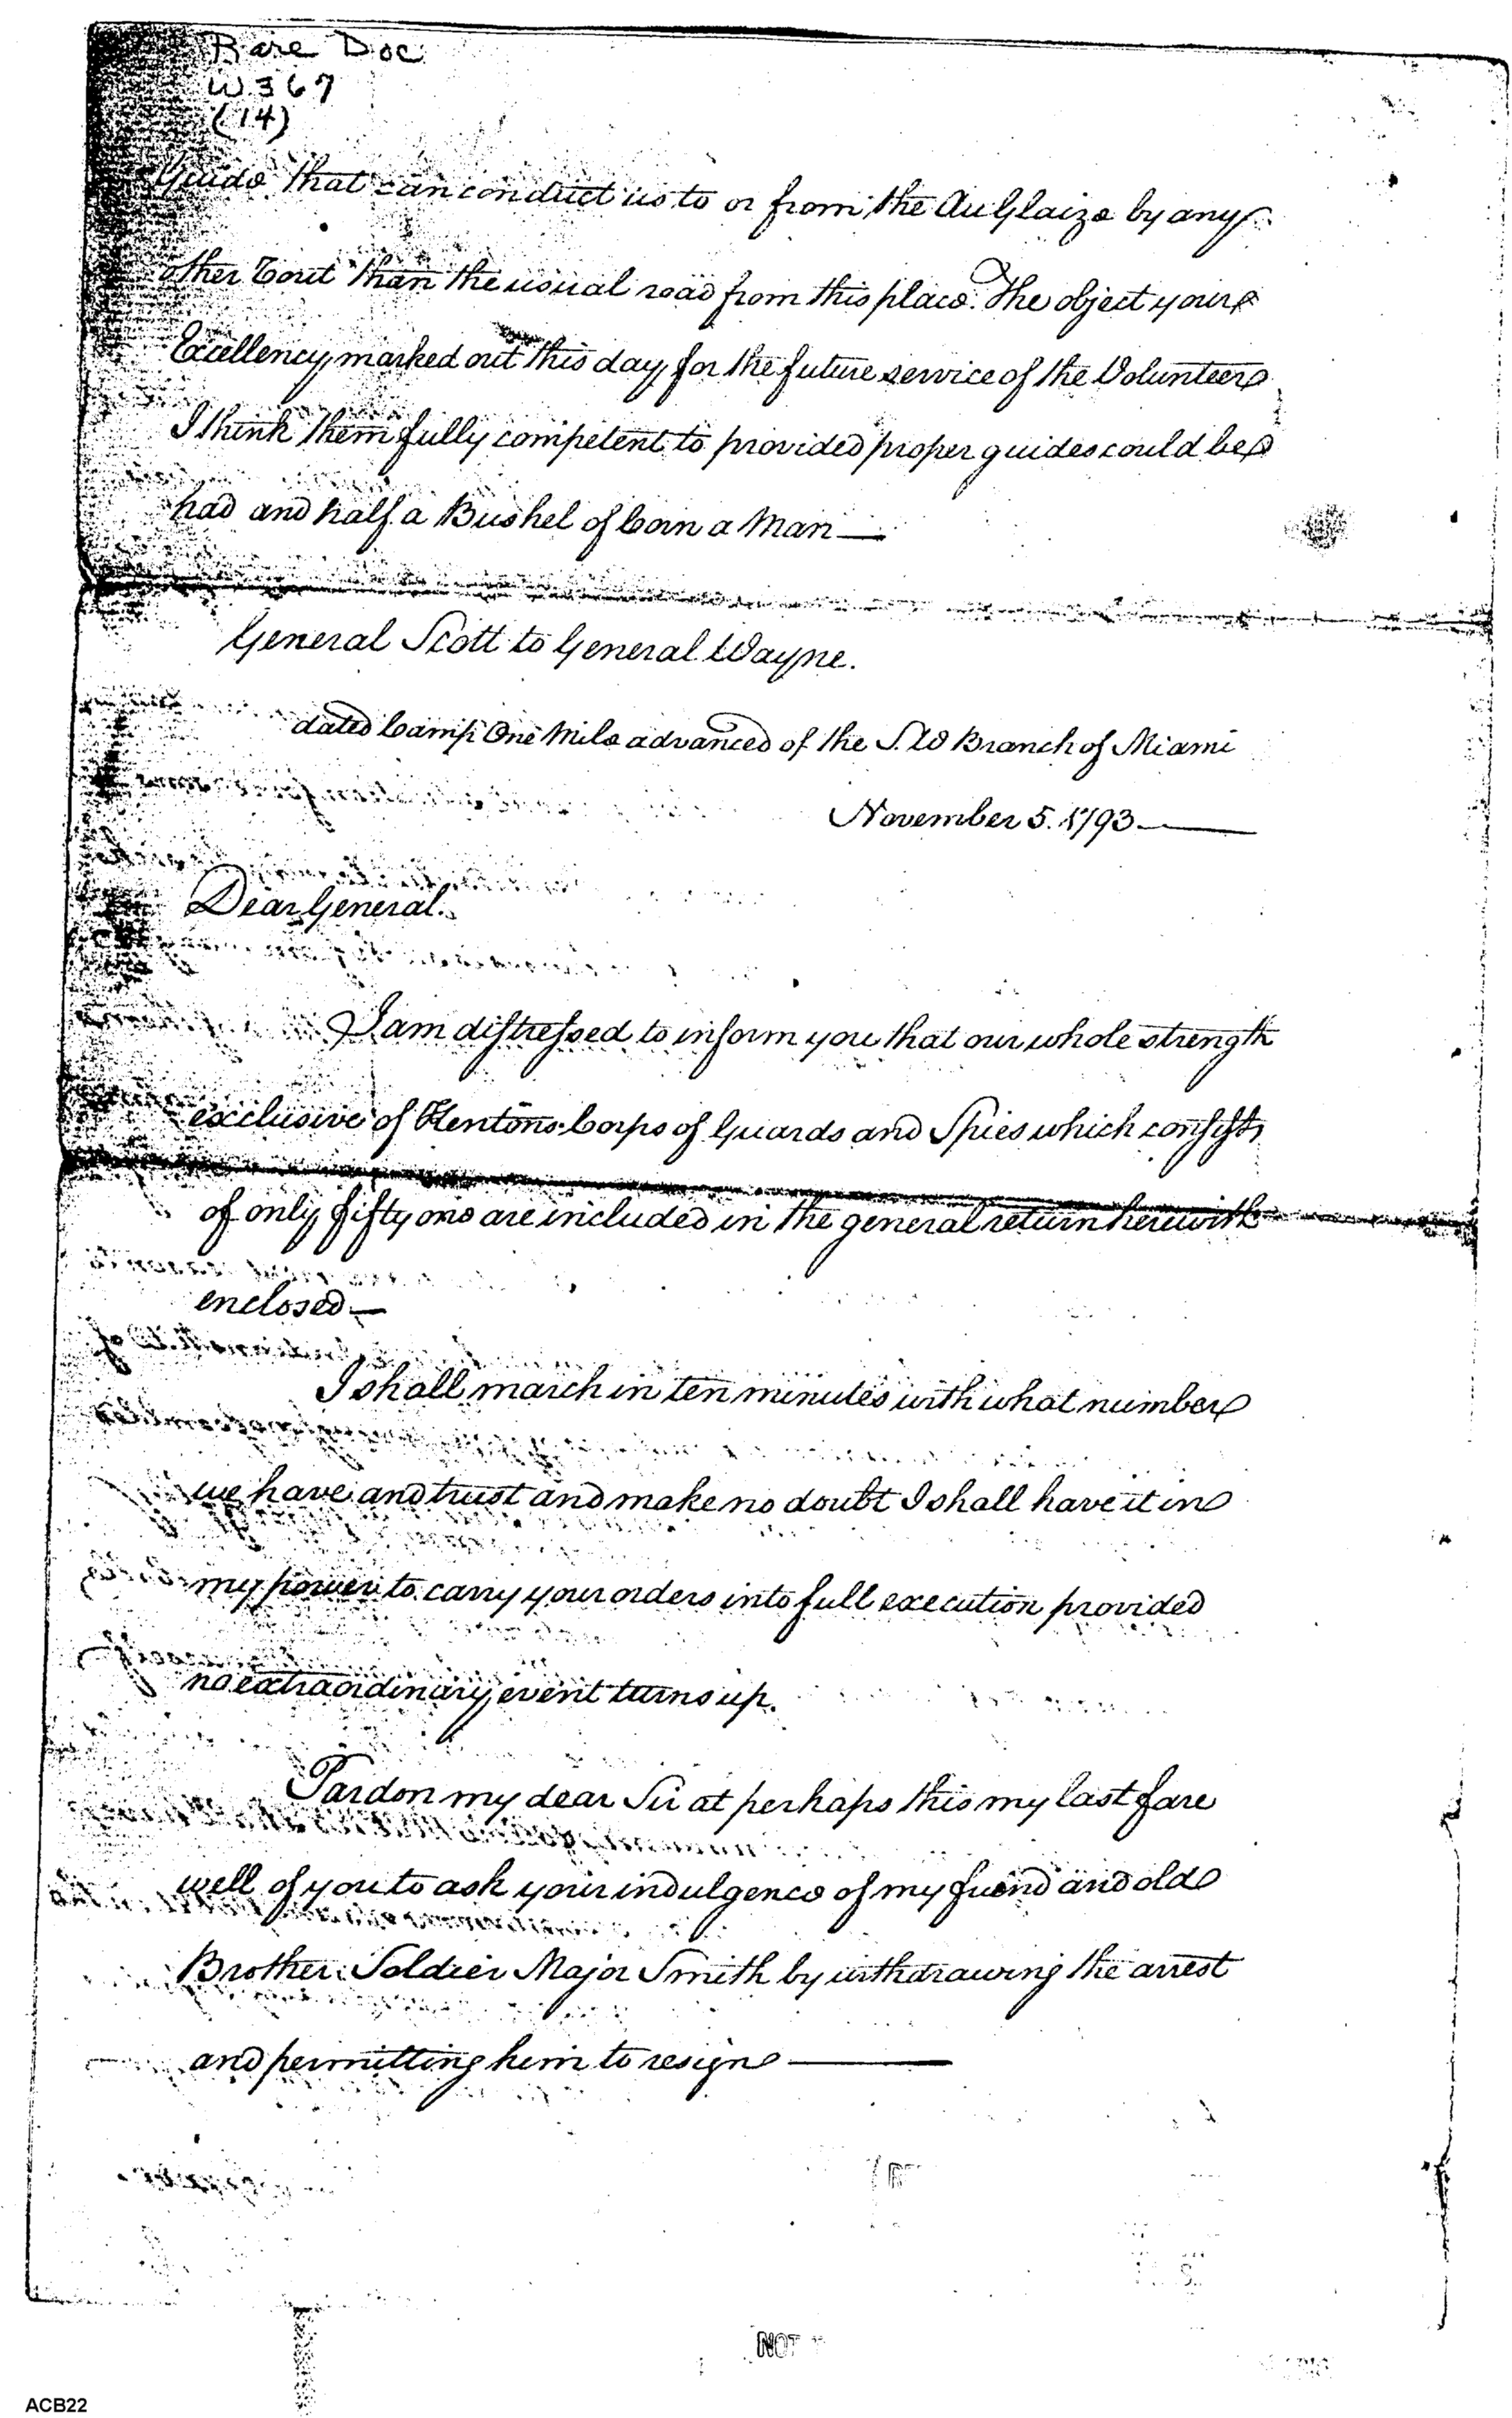 Rare Doc
W367
(14)
Guide that can conduct us to or from the AuGlaize by any
other Rout than the usual road from this place. The object your
Excellency marked out this day for the future service of the Volunteers
I think them fully competent to provided proper guides could be
had and half a Bushel of Corn a Man —
General Scott to General Wayne.
dated Camp One Mile advanced of the S.W Branch of Miami
November 5. 1793. —
Dear General.
I am distressed to inform you that our whole strength
exclusive of Kentons Corps of Guards and Spies which consists
of only fifty one are included in the general return herewith
enclosed —
I shall march in ten minutes with what number
we have and trust and make no doubt I shall have it in
my power to carry your orders into full execution provided
no extraordinary event turns up.
Pardon my dear Sir at perhaps this my last fare
well of you to ask your indulgence of my friend and old
Brother Soldier Major Smith by withdrawing the arrest
and permitting him to resign —
NOT
ACB22